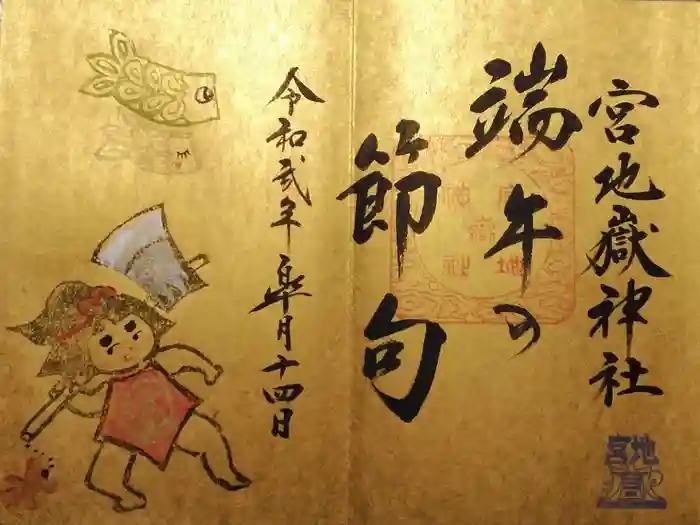 宮地嶽神社
端午の
節句
令和弐年 皐月十四日
宮地嶽